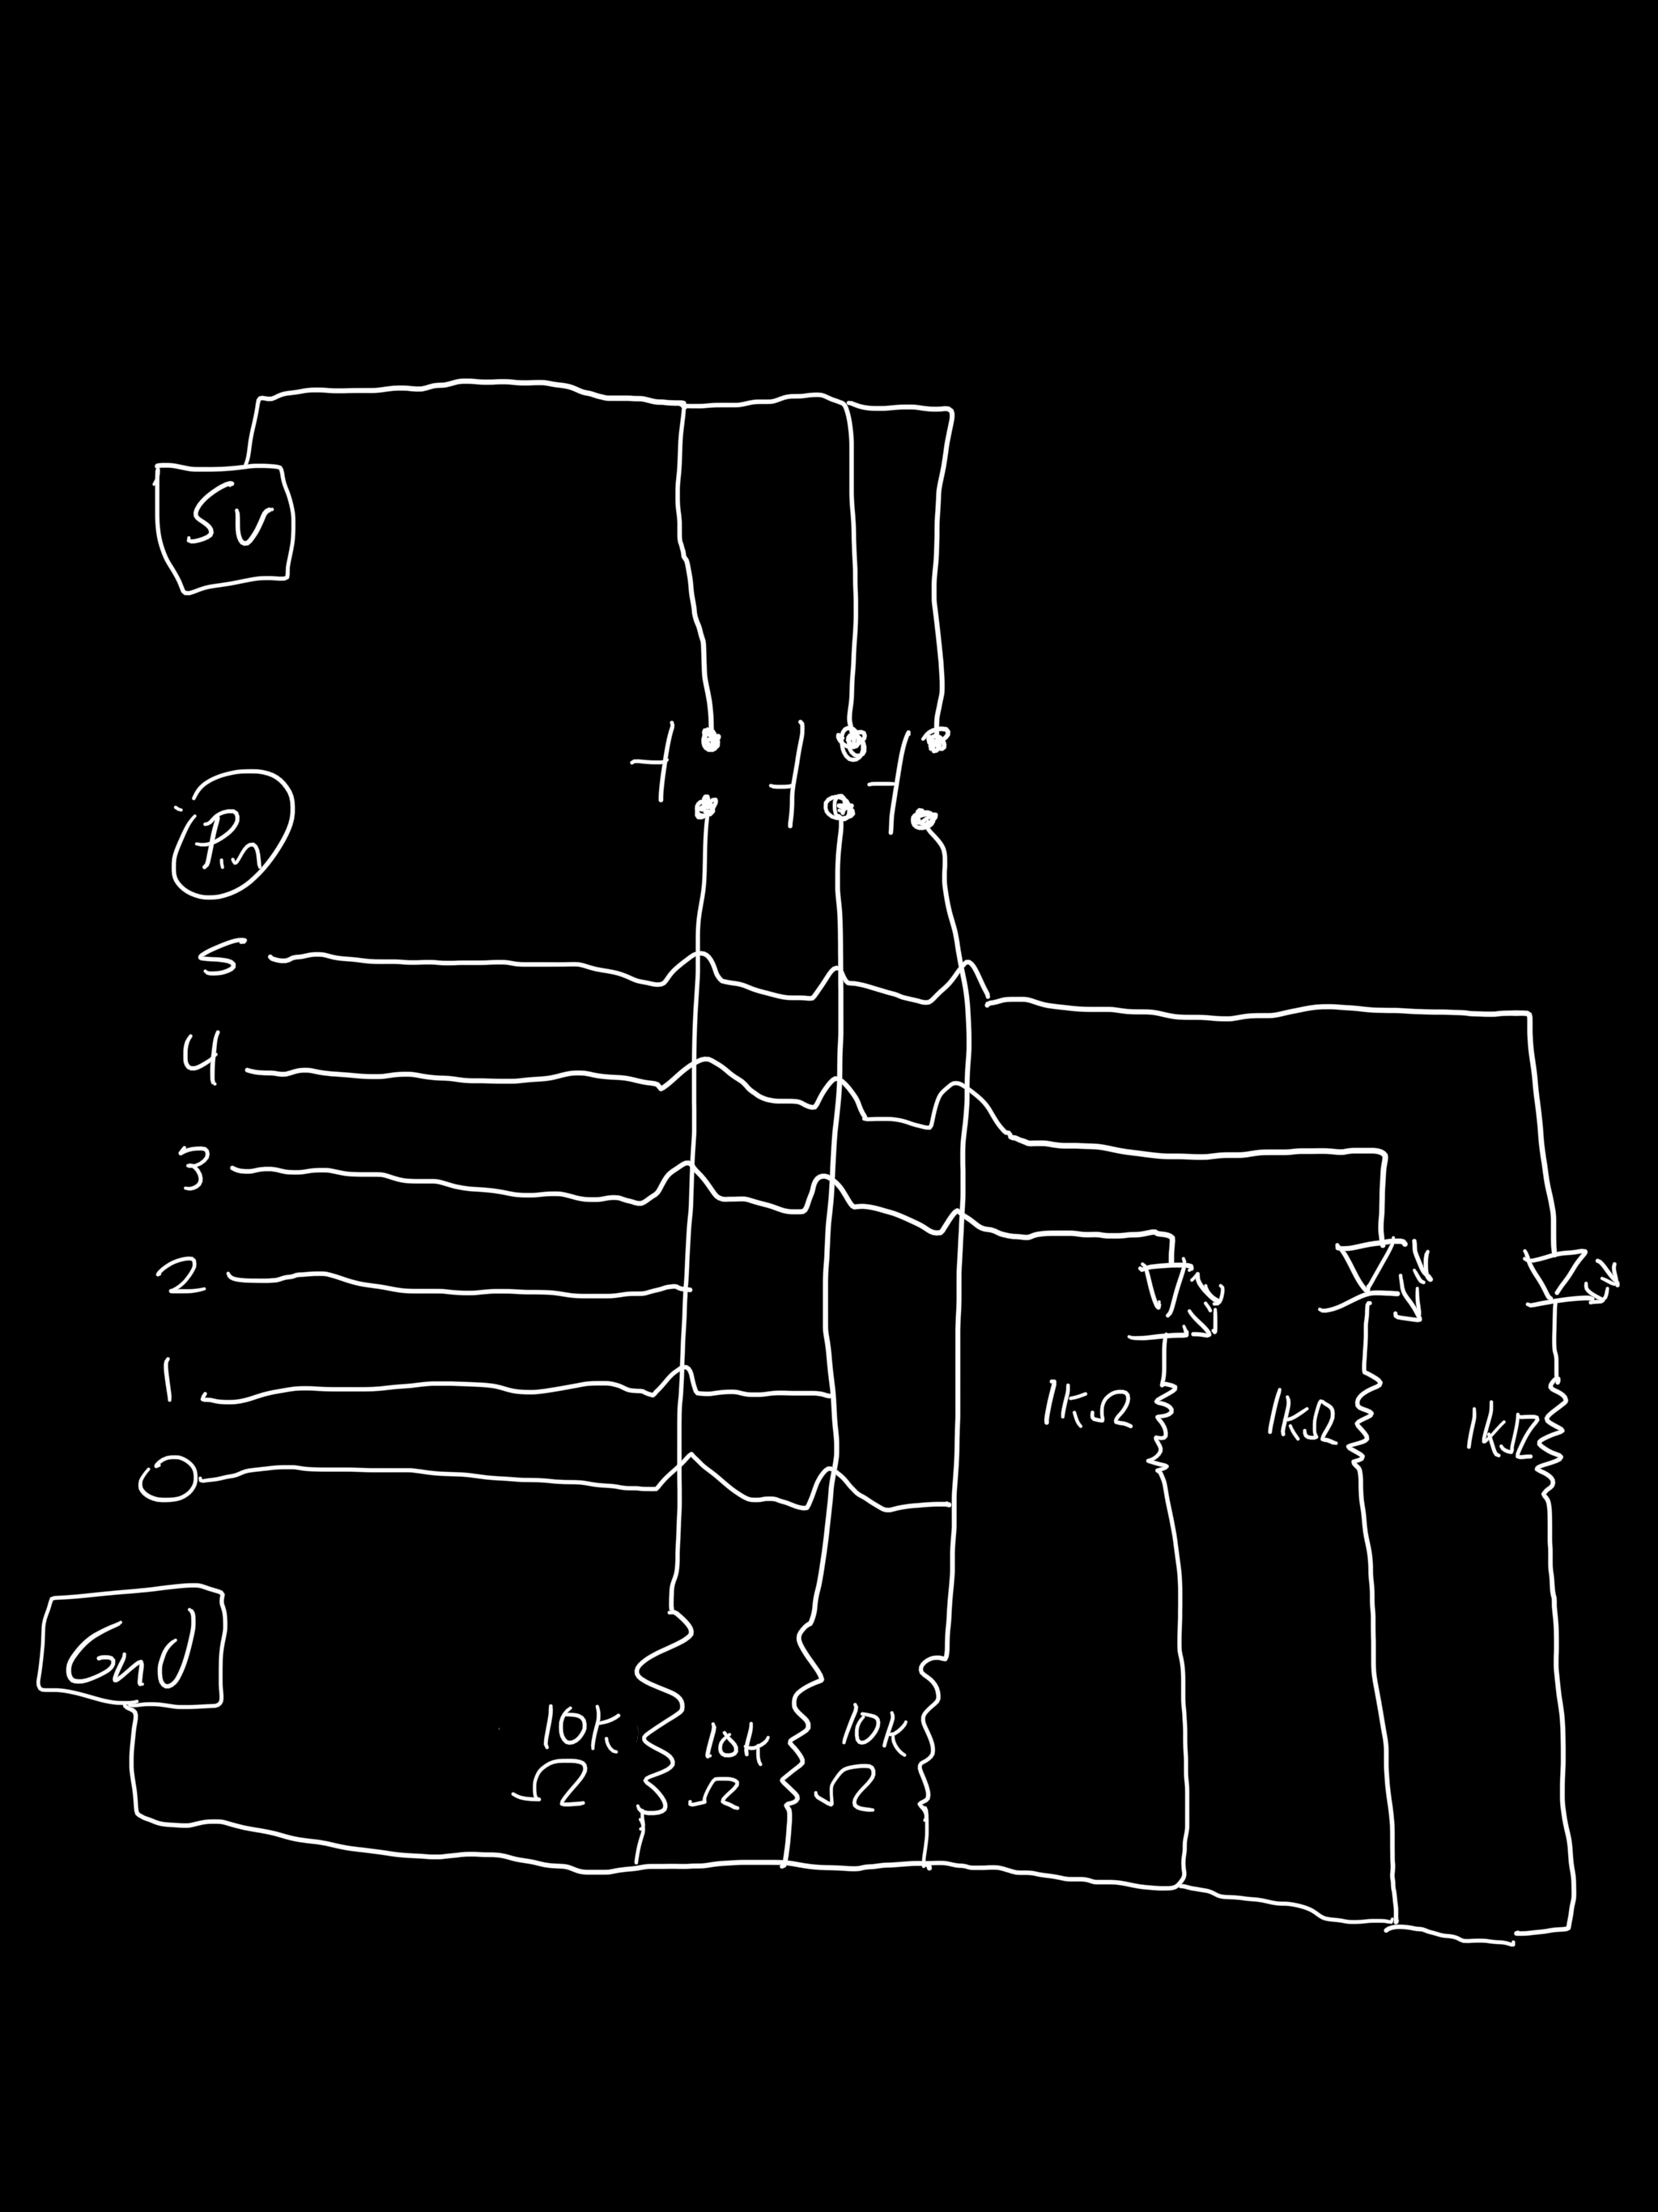 5v
Pin
5
4
3
2
1
0
Gnd
10K
Ω
10K
Ω
10K
Ω
1KΩ
1KΩ
1KΩ